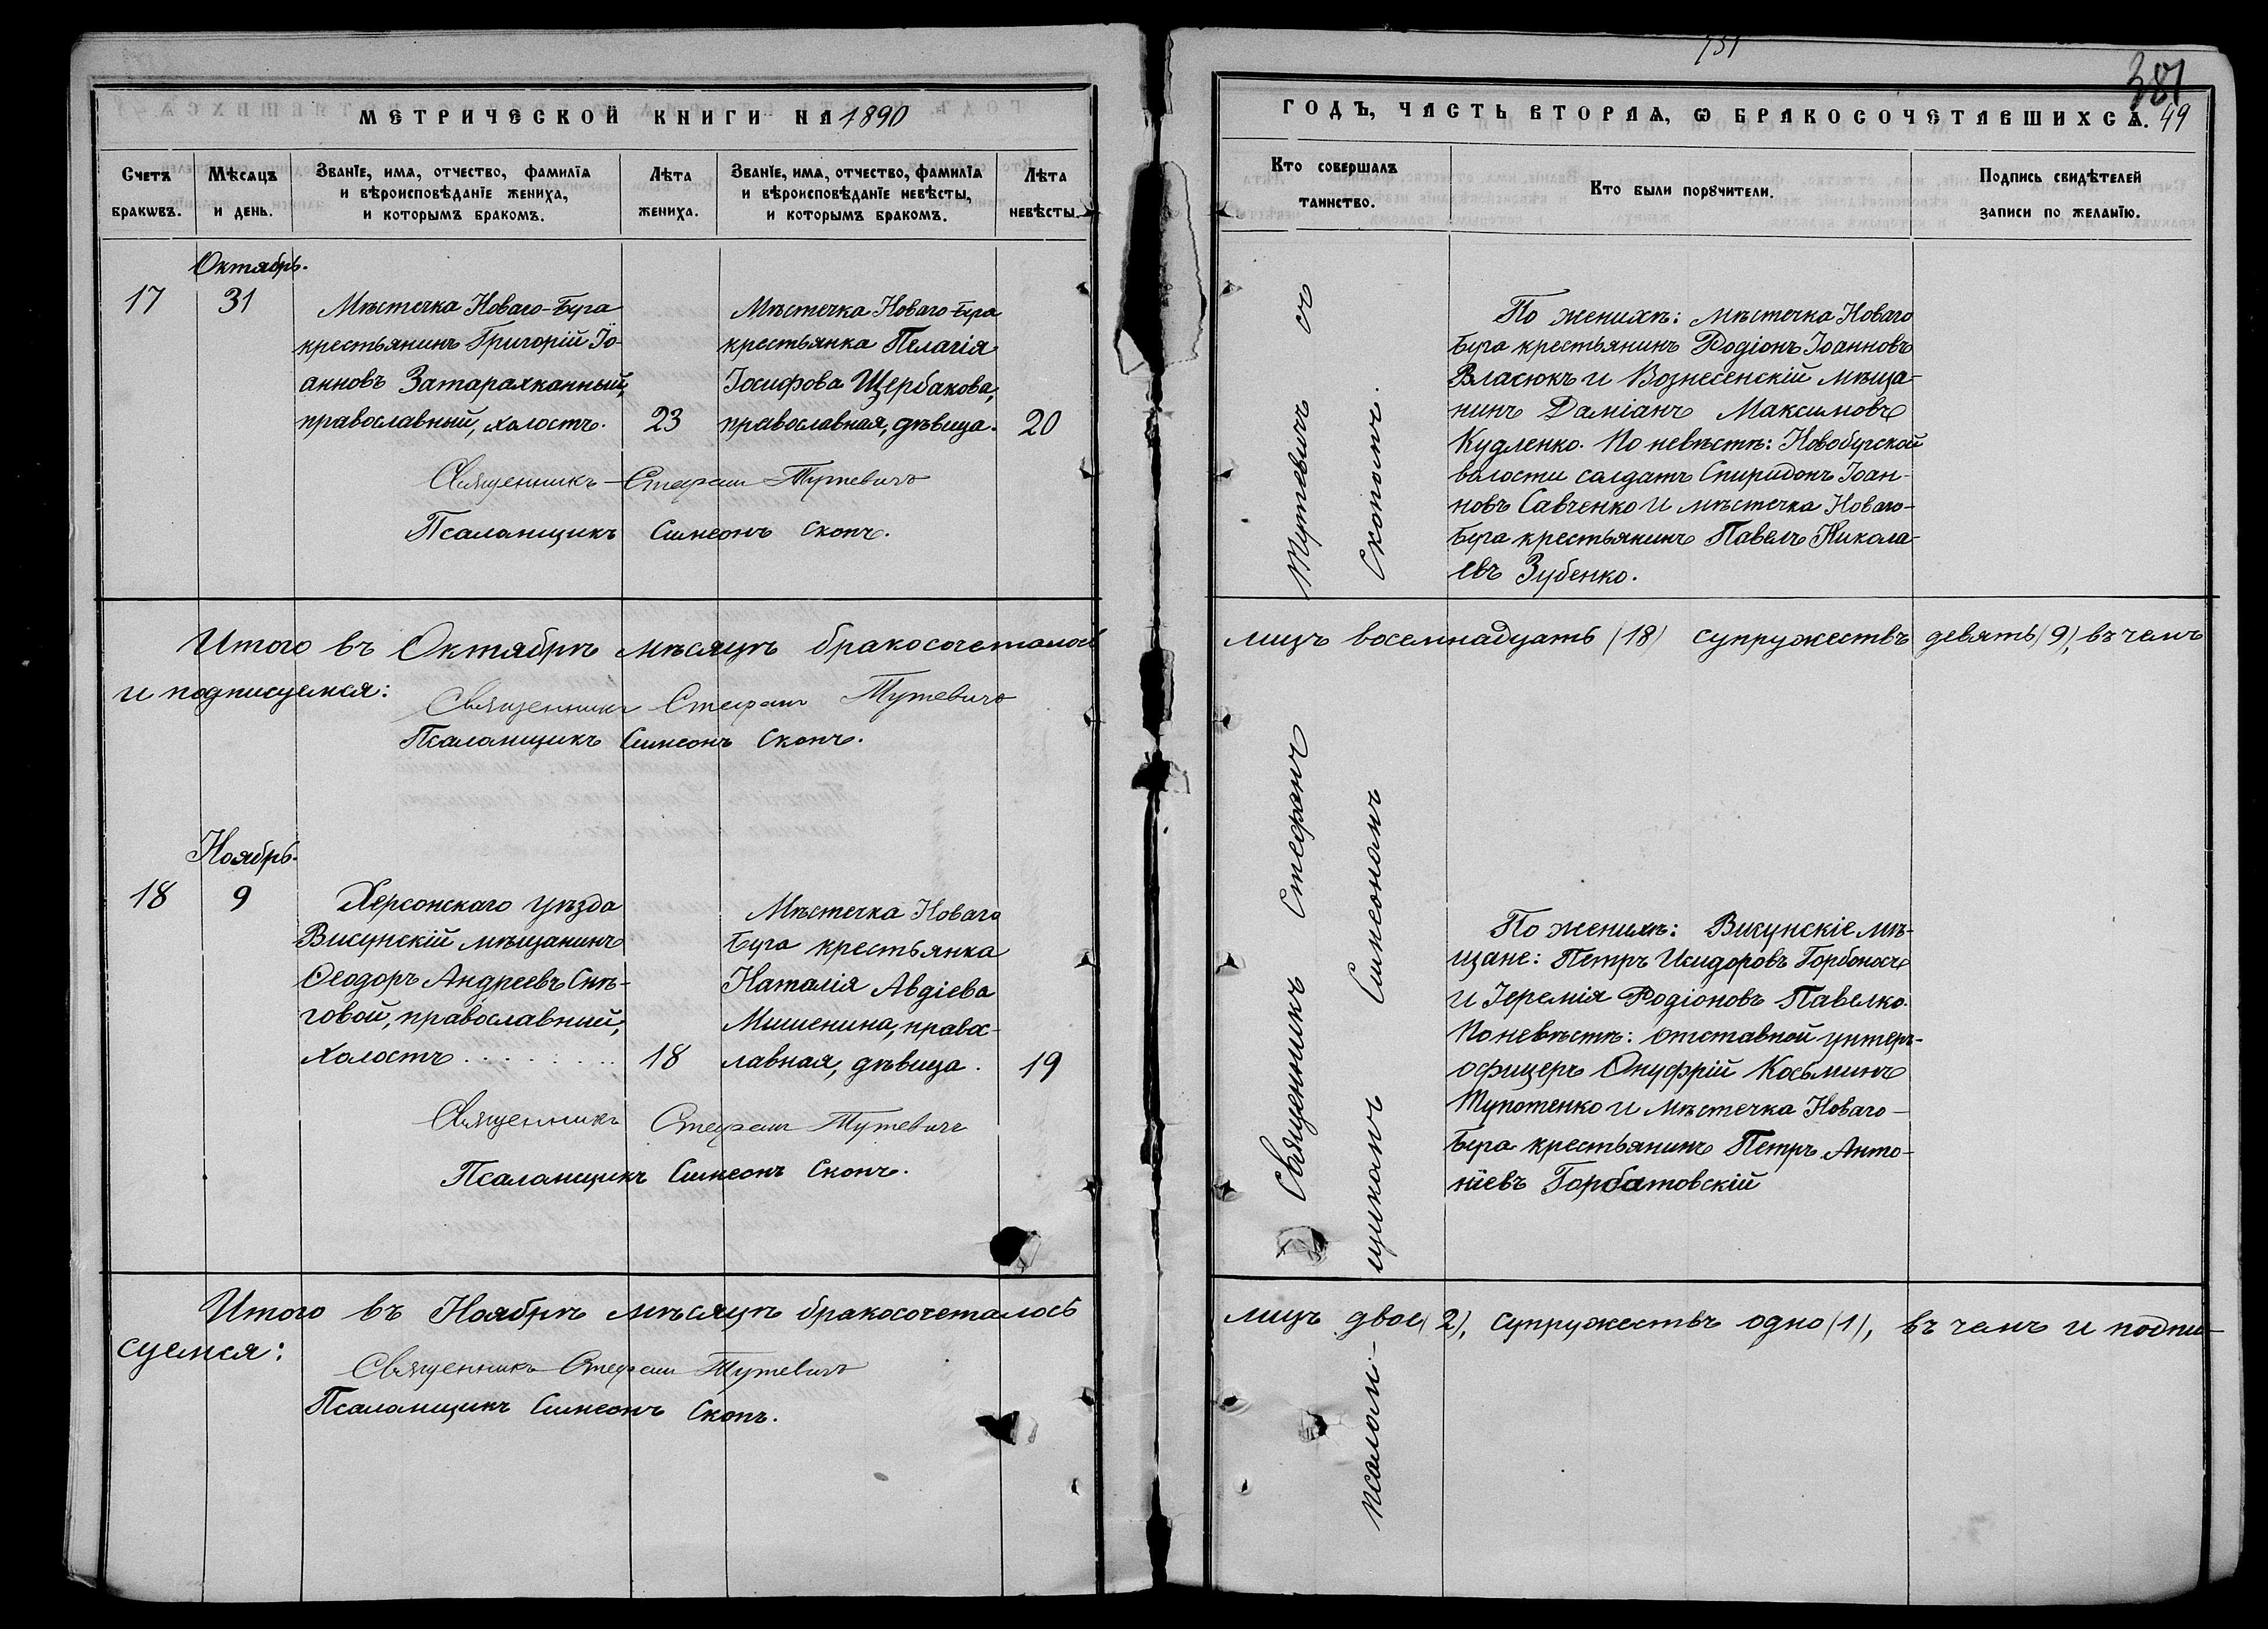 МЕТРИЧЕСКОЙ КНИГИ НА 1890
Счетъ браковъ.
Мѣсяцъ и день.
Званїе, имѧ, отчество, фамилїѧ
и вѣроисповѣданїе жениха,
и которымъ бракомъ.
Лѣта
жениха.
Званїе, имѧ, отчество, фамилїѧ
и вѣроисповѣданїе невѣсты,
и которымъ бракомъ.
Лѣта
невѣсты.
Октябрь.
17
31
Мѣстечка Новаго-Буга
крестьянинъ Григорій Іо-
анновъ Затараяканный,
православный, холостъ.
23
Мѣстечка Новаго-Буга
крестьянка Пелагія
Іосифова Щербакова,
православная, дѣвица.
20
Священникъ Стефанъ Тутевичъ
Псаломщикъ Симеонъ Скопъ.
Итого въ Октябрѣ мѣсяцѣ бракосочеталось
и подписуемся:
Священникъ Стефанъ Тутевичъ
Псаломщикъ Симеонъ Скопъ.
Ноябрь.
18
9
Херсонскаго уѣзда
Висунскій мѣщанинъ
Ѳеодоръ Андреевъ Снѣ-
говой, православный,
холостъ . . . . . . . .
18
Мѣстечка Новаго
Буга крестьянка
Наталія Авдіева
Мишенина, правос-
лавная, дѣвица.
19
Священникъ Стефанъ Тутевичъ
Псаломщикъ Симеонъ Скопъ.
Итого въ Ноябрѣ мѣсяцѣ бракосочеталось
суемся:
Священникъ Стефанъ Тутевичъ
Псаломщикъ Симеонъ Скопъ.
381
ГОДЪ, ЧАСТЬ ВТОРАѦ, Ѡ БРАКОСОЧЕТАВШИХСѦ. 49
Кто совершалъ
таинство.
Кто были порꙋчители.
Подпись свидѣтелей
записи по желанїю.
Священникъ Стефанъ Тутевичъ съ
псалом-
щикомъ Симеономъ Скопомъ.
По женихѣ: мѣстечка Новаго
Буга крестьянинъ Родіонъ Іоанновъ
Власюкъ и Вознесенскій мѣща-
нинъ Даміанъ Максимовъ
Кудленко. По невѣстѣ: Новобугской
волости солдатъ Спиридонъ Іоан-
новъ Савченко и мѣстечка Новаго-
Буга крестьянинъ Павелъ Никола-
евъ Зубенко.
лицъ восемнадцать (18) супружествъ девять (9), въ чемъ
По женихѣ: Висунскіе мѣ-
щане: Петръ Исидоровъ Горбоносъ
и Іеремія Родіоновъ Павелко.
По невѣстѣ: отставной унтеръ-
офицеръ Онуфрій Косьминъ
Тупотенко и мѣстечка Новаго-
Буга крестьянинъ Петръ Анто-
ніевъ Горбатовскій
лицъ двое (2), супружествъ одно (1), въ чемъ и подпи-